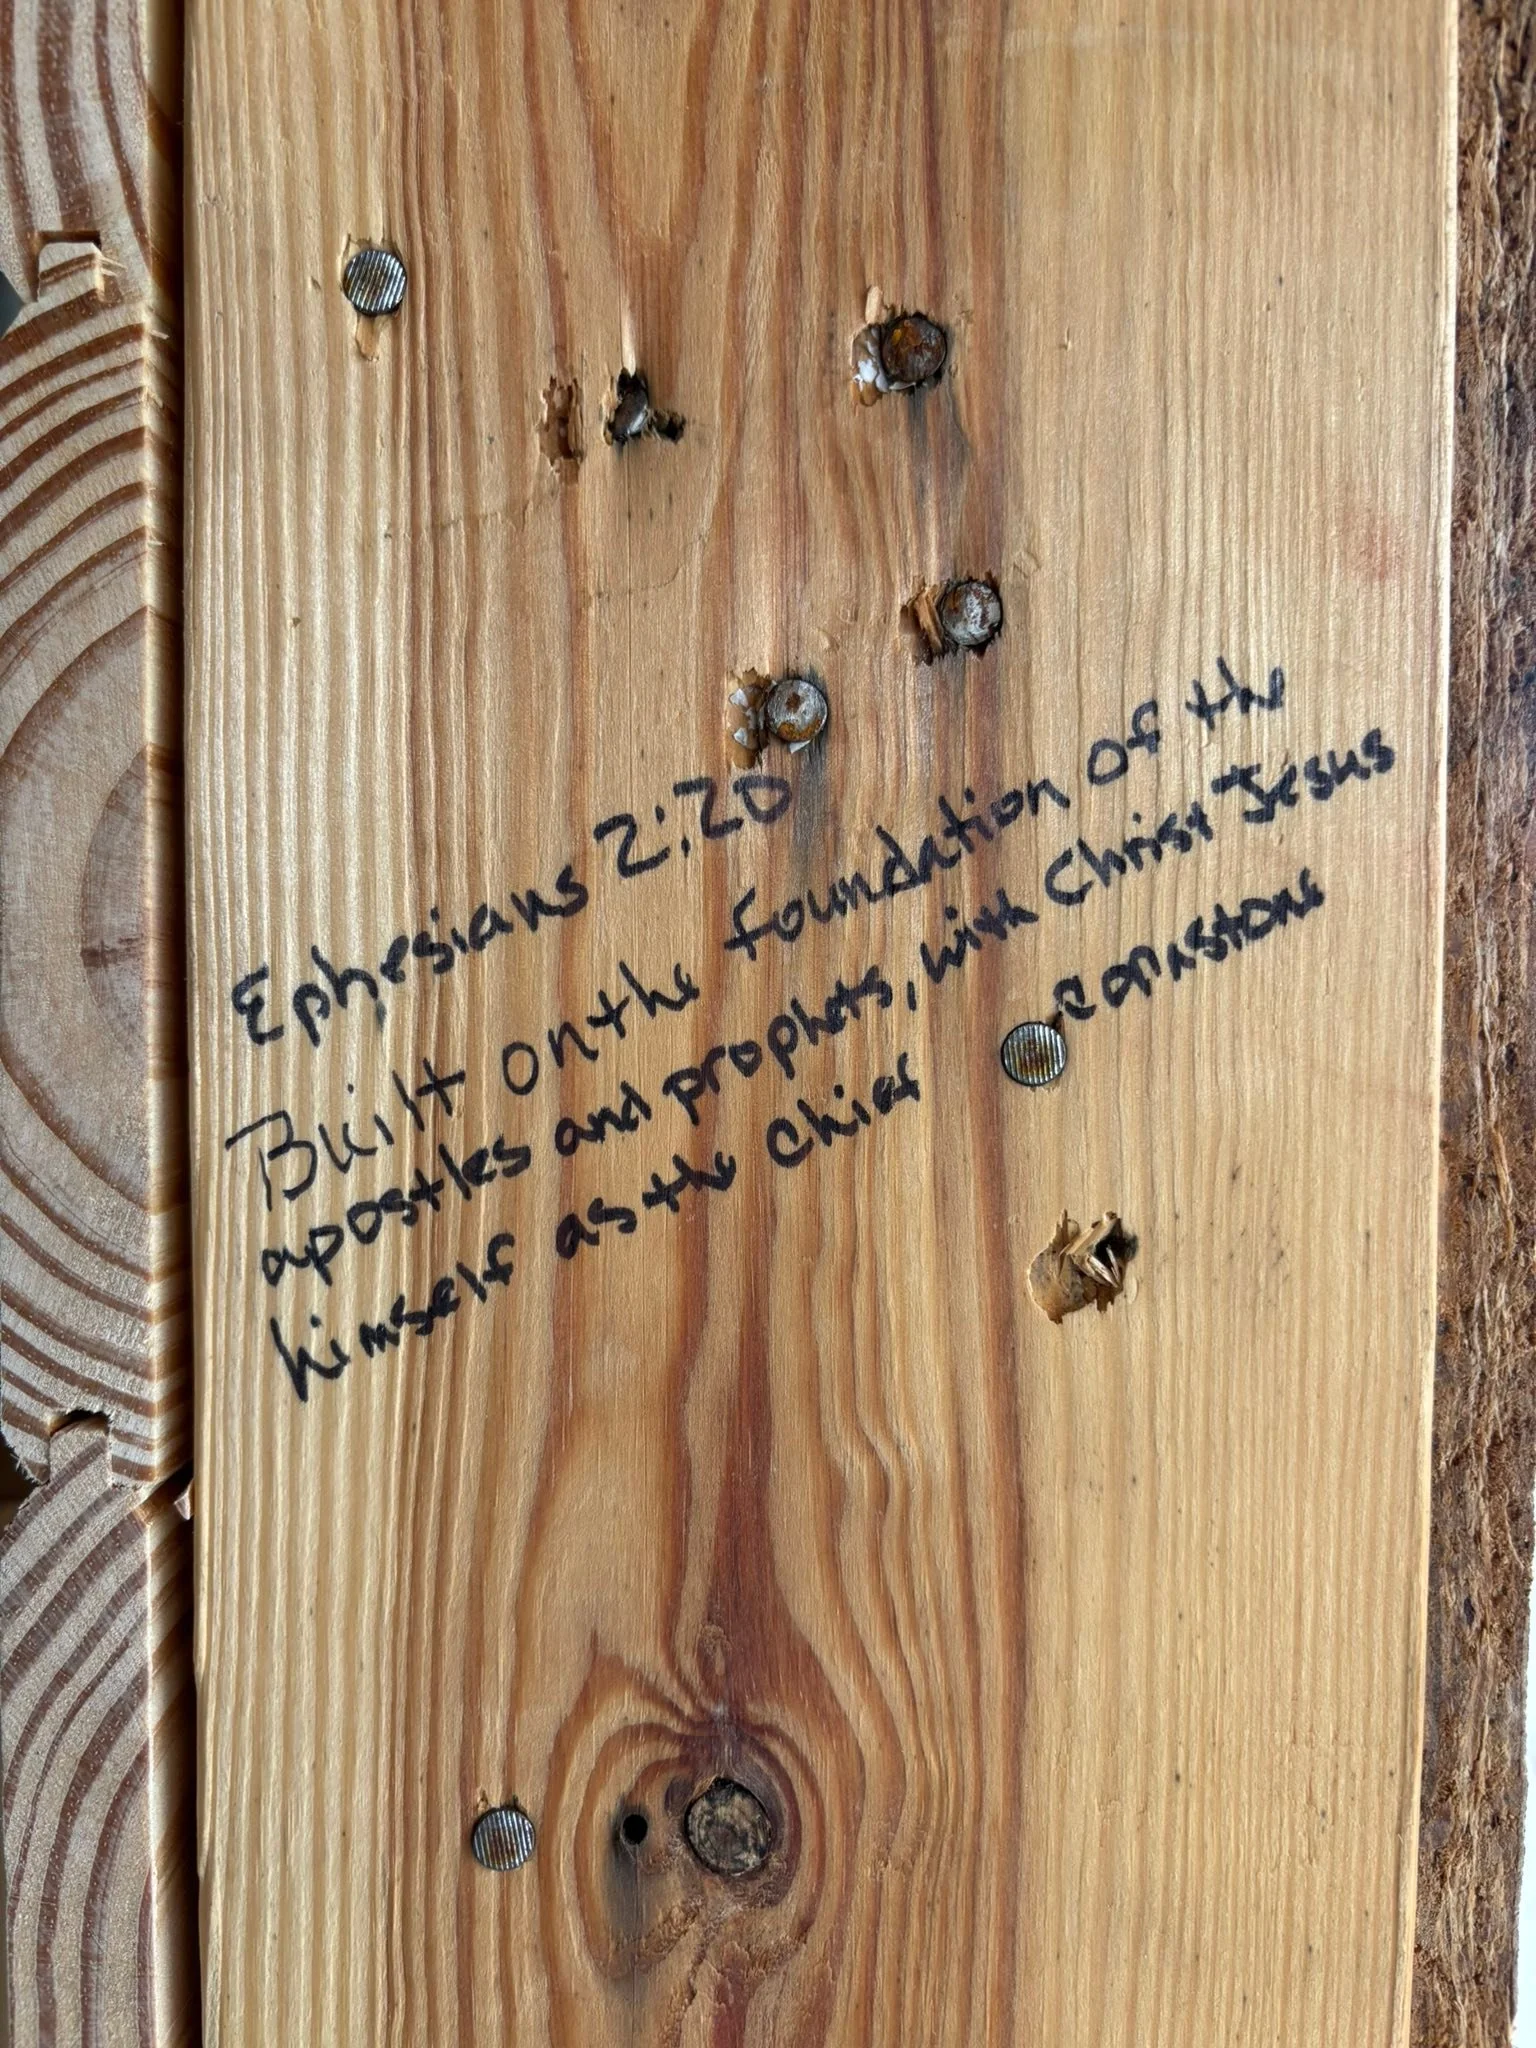 Ephesians 2:20
Built on the foundation of the
apostles and prophets, with Christ Jesus
himself as the Chief cornstone